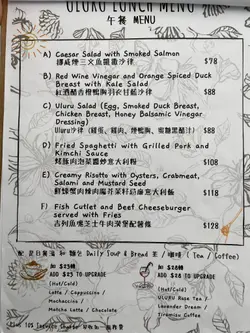 ULURU LUNCH MENU
午餐 MENU
A) Caesar Salad with Smoked Salmon
挪威煙三文魚凱撒沙律 $78
B) Red Wine Vinegar and Orange Spiced Duck
Breast with Kale Salad
紅酒醋香橙鴨胸羽衣甘藍沙律 $88
C) Uluru Salad (Egg, Smoked Duck Breast,
Chicken Breast, Honey Balsamic Vinegar
Dressing)
Uluru沙律 (雞蛋、雞肉、煙鴨胸、蜜糖黑醋汁) $88
D) Fried Spaghetti with Grilled Pork and
Kimchi Sauce
豚肉泡菜醬炒意大利粉 $108
E) Creamy Risotto with Oysters, Crabmeat,
Salami and Mustard Seed
意大利飯 $118
F) Fish Cutlet and Beef Cheeseburger
served with Fries
吉列魚芝士牛肉漢堡配薯條 $128
Daily Soup & Bread (Tea / Coffee)
ADD $25 TO UPGRADE
(Hot/Cold)
Latte / Cappuccino /
Mochaccino /
Matcha Latte / Chocolate
TO UPGRADE
(Hot/Cold)
ULURU Rose Tea /
Lavender Coffee /
Tiramisu Coffee
Plus 10% Service Charge